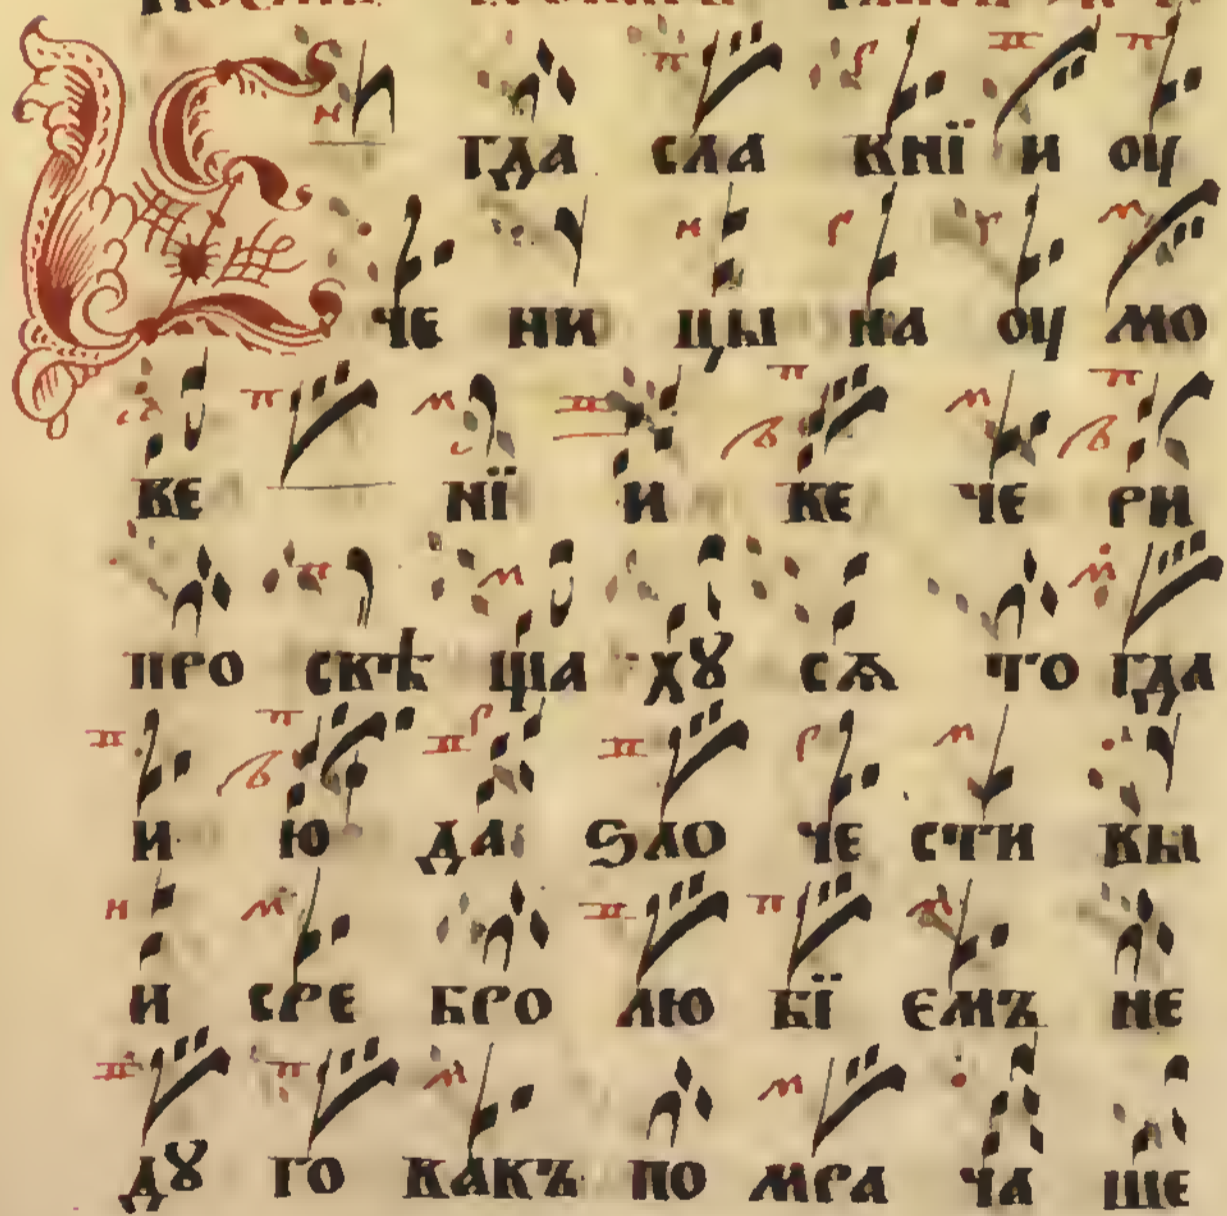 Е гда сла внїи оу
че ни цы на оу мо
ве нїи ве че ри
про свѣ ща хꙋ сѧ то гда
и ю да ѕло че сти вы
и сре бро лю бї емъ не
дꙋ го вавъ по мра ча ше